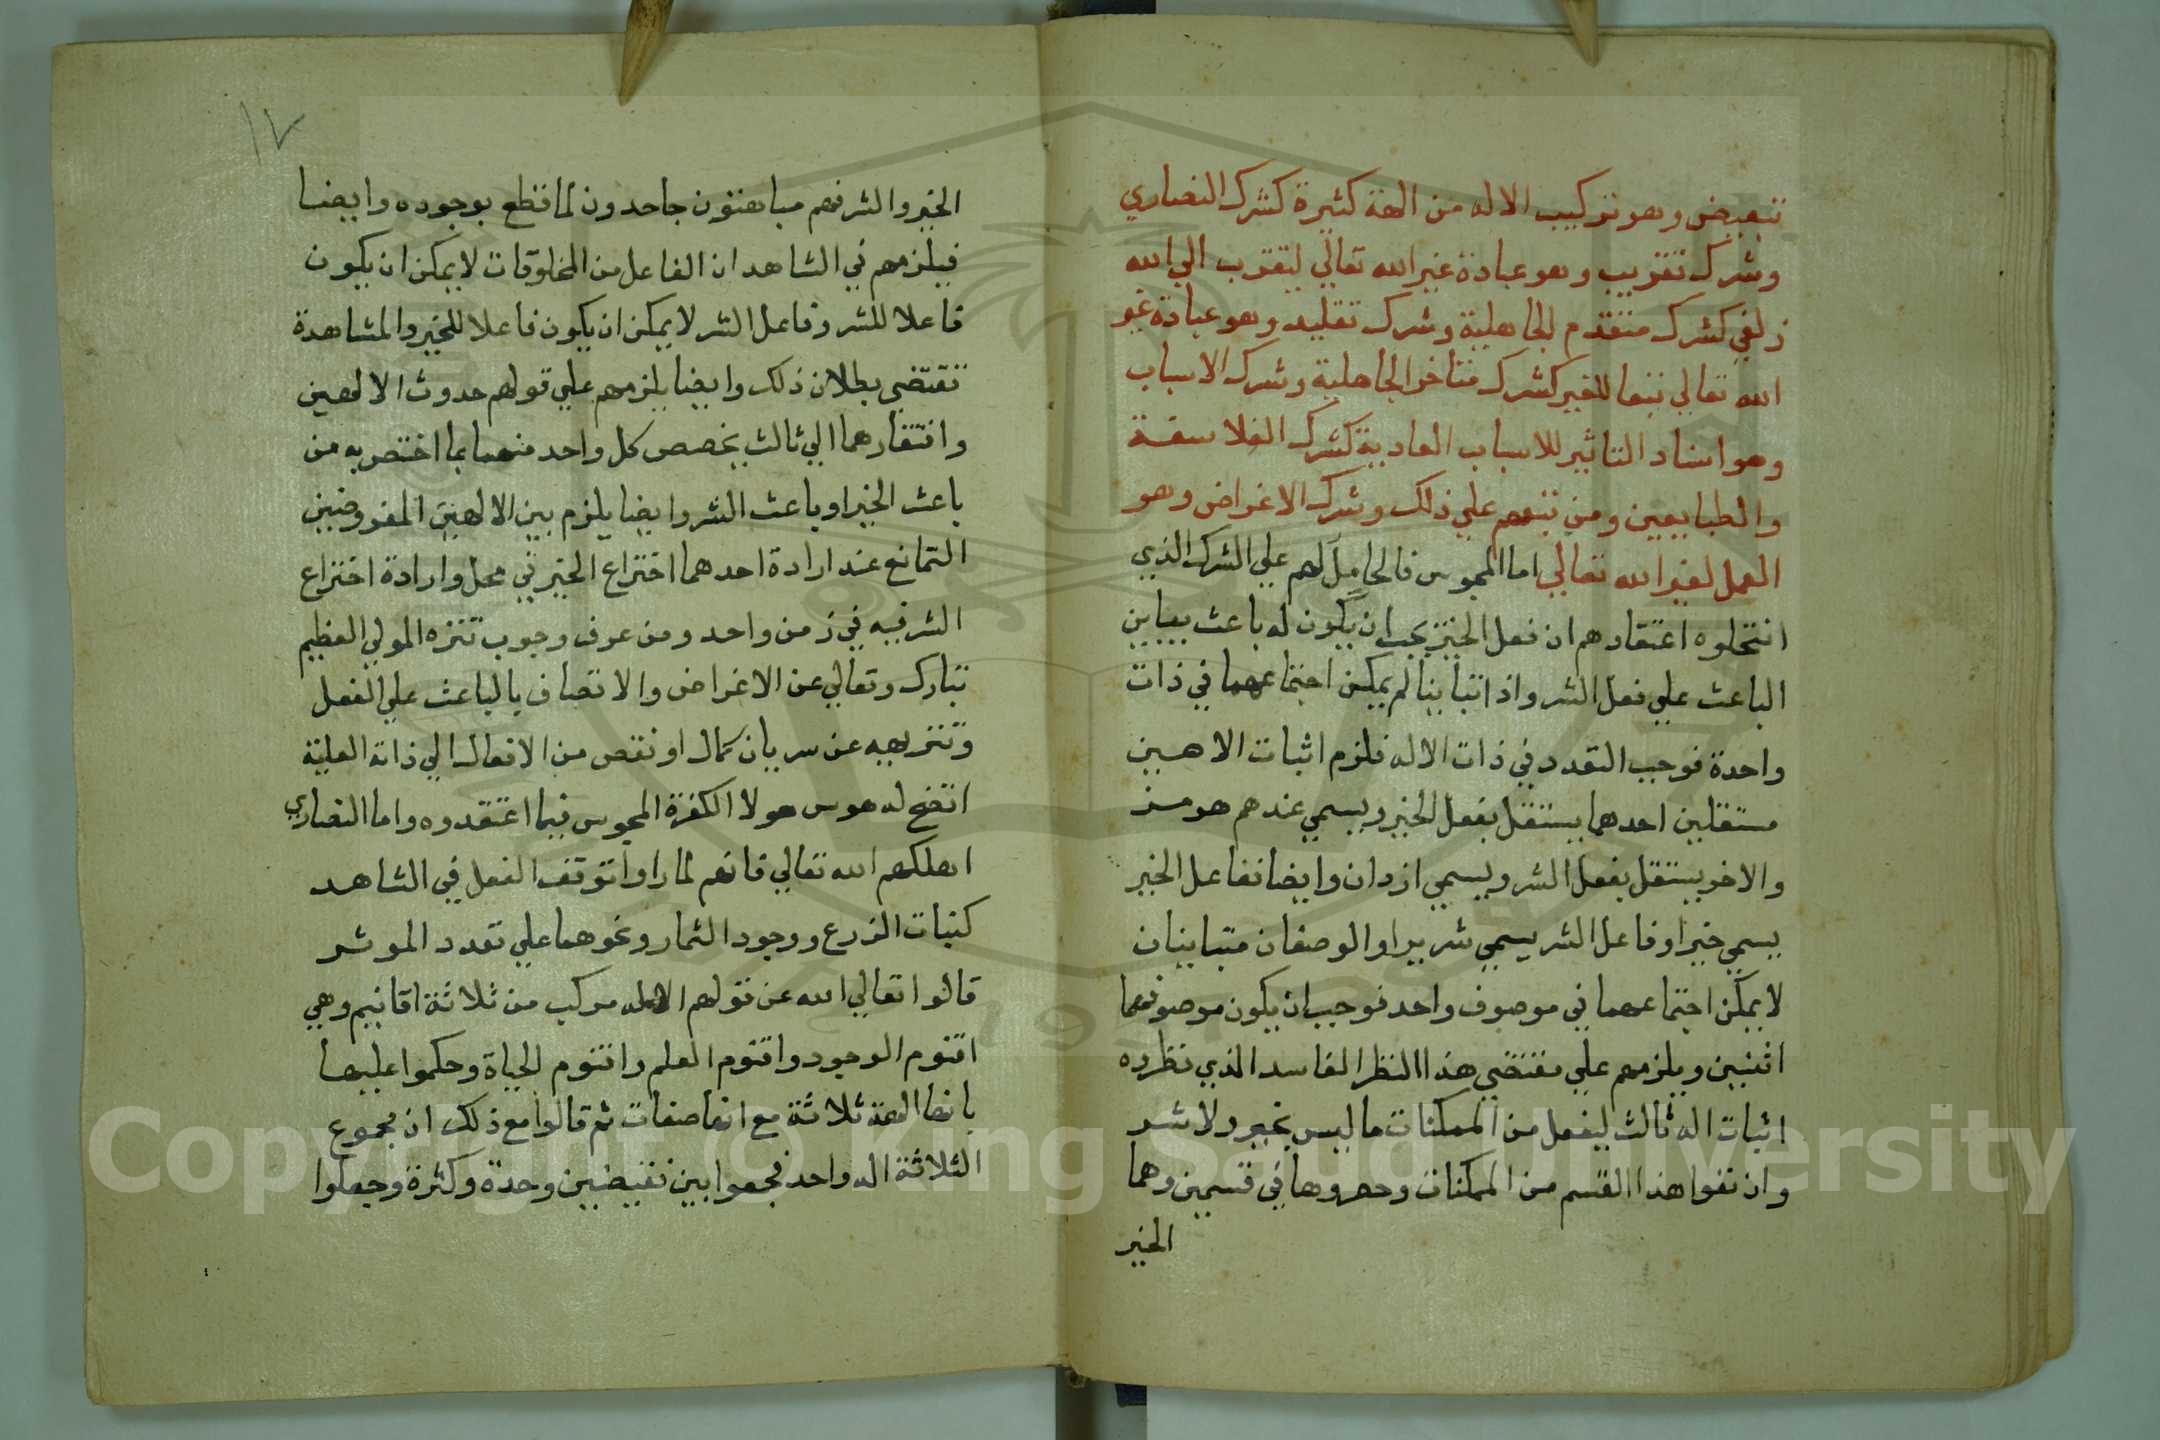 تبعيض وهو تركيب الاله من الهة كثيرة كشرك النصاري
وشرك تقريب وهو عبادة غير الله تعالي ليقرب الي الله
زلفي كشرك متقدم الجاهلية وشرك تقليد وهو عبادة غير
الله تعالي تبعا للغير كشرك متاخر الجاهلية وشرك الاسباب
وهو اسناد التاثير للاسباب العادية كشرك الفلاسفة
والطبايعين ومن تبعهم علي ذلك وشرك الاغراض وهو
العمل لغير الله تعالي اما المجوس فالحامل لهم علي الشرك الذي
انتحلوه اعتقادهم ان فعل الخير يجب ان يكون له باعث يباين
الباعث علي فعل الشر واذا تباينا لم يمكن اجتماعهما في ذات
واحدة فوجب التعدد في ذات الاله فلزم اثبات الاهين
مستقلين احدهما يستقل بفعل الخير ويسمي عندهم هومز
والاخر يستقل بفعل الشر ويسمي ازدان وايضا ففاعل الخير
يسمي خيرا وفاعل الشر يسمي شريرا والوصفان متباينان
لا يمكن اجتماعهما في موصوف واحد فوجب ان يكون موصوفهما
اثنين ويلزمهم علي مقتضي هذا النظر الفاسد الذي نظروه
اثبات اله ثالث ليفعل من الممكنات ما ليس بخير ولا شر
وان نفوا هذا القسم من الممكنات وحصروها في قسمين وهما
الخير
١٧
الخير والشر فهم مباهتون جاحدون لما قطع بوجوده وايضا
فيلزمهم في الشاهد ان الفاعل من المخلوقات لا يمكن ان يكون
فاعلا للشر وفاعل الشر لا يمكن ان يكون فاعلا للخير والمشاهدة
تقتضي بطلان ذلك وايضا يلزمهم علي قولهم حدوث الالهين
وافتقارهما الي ثالث يخصص كل واحد منهما بما اختص به من
باعث الخير او باعث الشر وايضا يلزم بين الالهين المفروضين
التمانع عند ارادة احدهما اختراع الخير في محل وارادة اختراع
الشر فيه في زمن واحد ومن عرف وجوب تنزه المولي العظيم
تبارك وتعالي عن الاغراض والاتصاف بالباعث علي الفعل
وتنزيهه عن سريان كمال او نقص من الافعال الي ذاته العلية
اتضح له هوس هولا الكفرة المجوس فيما اعتقدوه واما النصاري
اهلكهم الله تعالي فانهم لما راوا توقف الفعل في الشاهد
كنبات الزرع ووجود الثمار ونحوهما علي تعدد الموثر
قالوا تعالي الله عن قولهم الاله مركب من ثلاثة اقانيم وهي
اقنوم الوجود واقنوم العلم واقنوم الحياة وحكموا عليها
بانها الهة ثلاثة مع انها صفات ثم قالوا مع ذلك ان مجموع
الثلاثة اله واحد فجمعوا بين نقيضين وحدة وكثرة وجعلوا
Copyright © King Saud University